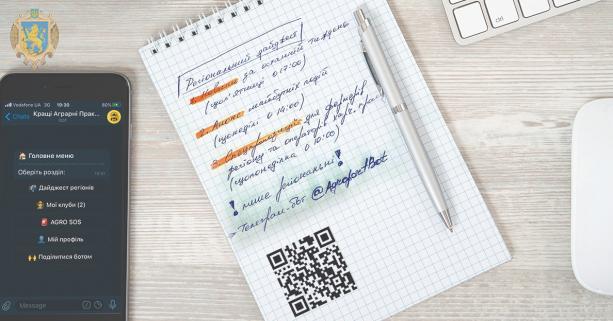 Vodafone UA 3G 19:30 80%
Chats
Кращі Аграрні Прак...
Головне меню
Оберіть розділ:
Дайджест регіонів
Мої клуби (2)
AGRO SOS
Мій профіль
Поділитися ботом
Message
Регіональний дайджест
1. Новини за останній тиждень
(щоп'ятниці о 17:00)
2. Анонс майбутніх подій
(щонеділі о 14:00)
3. Спецпропозиції для фермерів
регіону та операторів харч.
(щопонеділка о 10:00)
! лише регіональні !
Телеграм-бот @AgroportBot